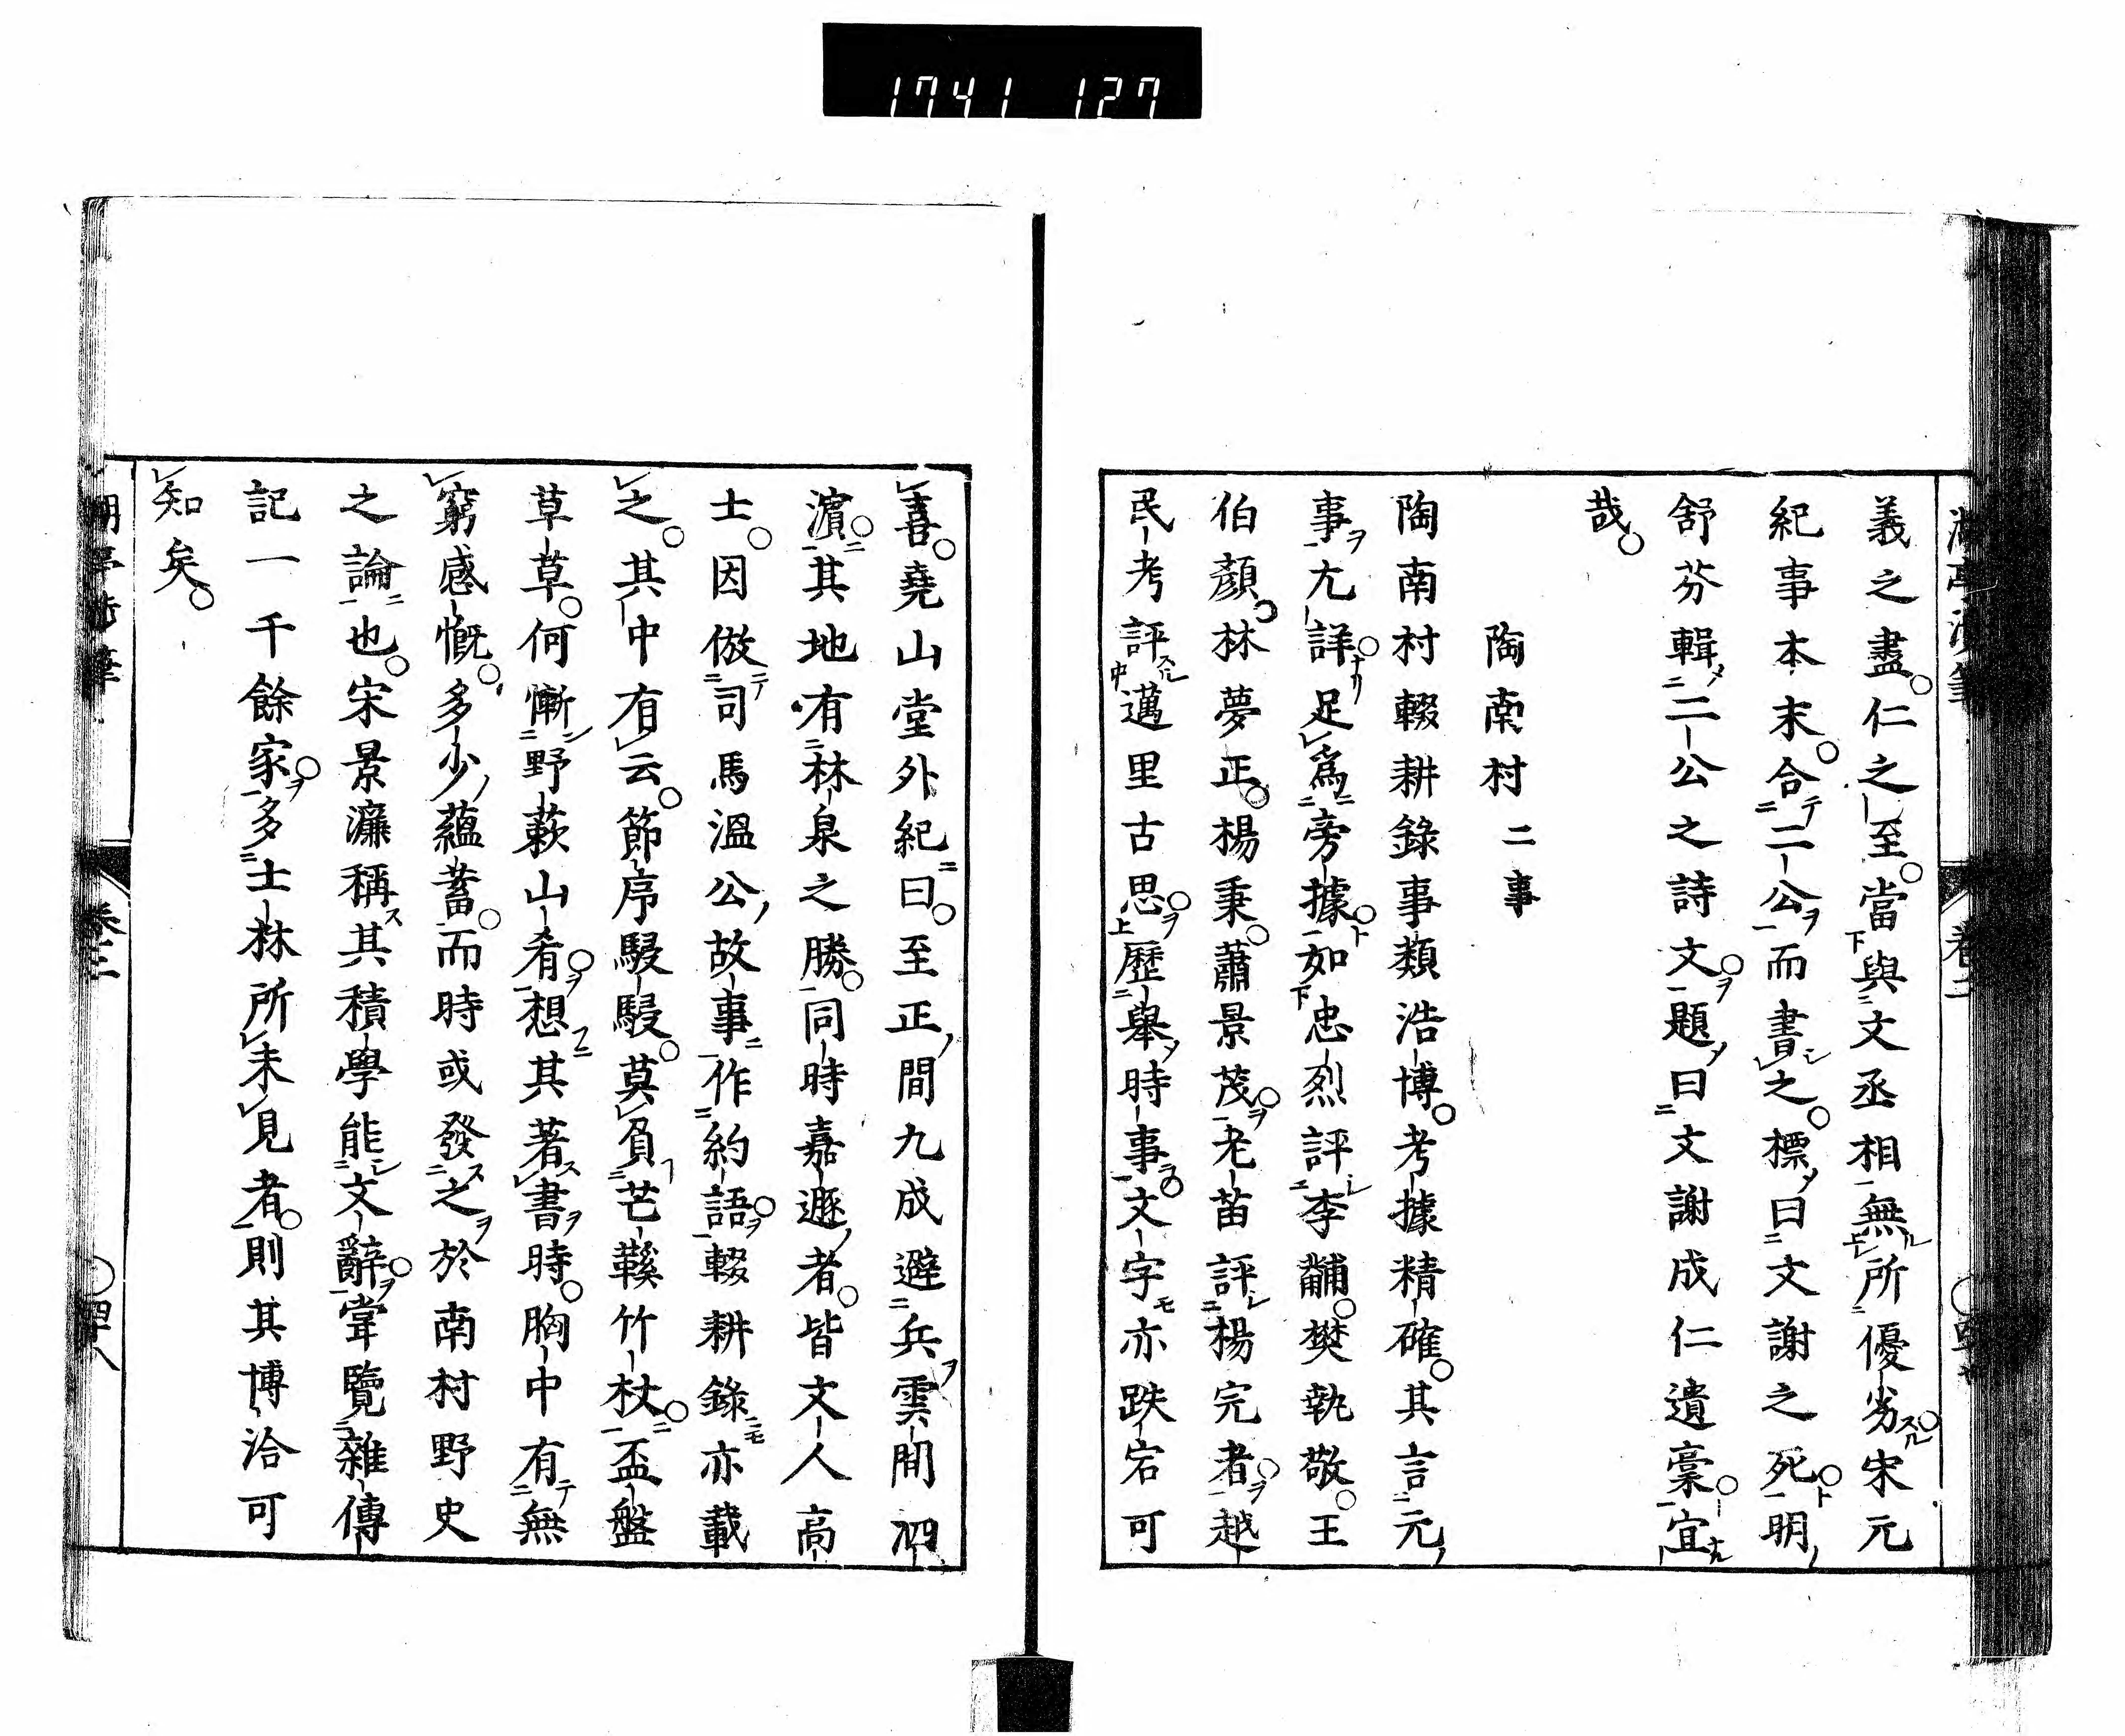 1741 127
義之盡仁之至當與文丞相無所優劣宋元
紀事本末合二公而書之標曰文謝之死明
舒芬輯二公之詩文題曰文謝成仁遺稾宜
哉
陶南村二事
陶南村輟耕錄事類浩博考據精確其言元
事尤詳足爲旁據如忠烈評李黼樊執敬王
伯顏林夢正楊秉蕭景茂老苗評楊完者越
民考評邁里古思歷舉時事文字亦跌宕可
喜堯山堂外紀曰至正間九成避兵雲間泗
濵其地有林泉之勝同時嘉遯者皆文人高
士因倣司馬溫公故事作約語輟耕錄亦載
之其中有云節序駸駸莫負芒鞵竹杖盃盤
草草何慚野蔌山肴想其著書時胸中有無
窮感慨多少蘊蓄而時或發之於南村野史
之論也宋景濂稱其積學能文辭甞覽雜傳
記一千餘家多士林所未見者則其博洽可
知矣
卷三